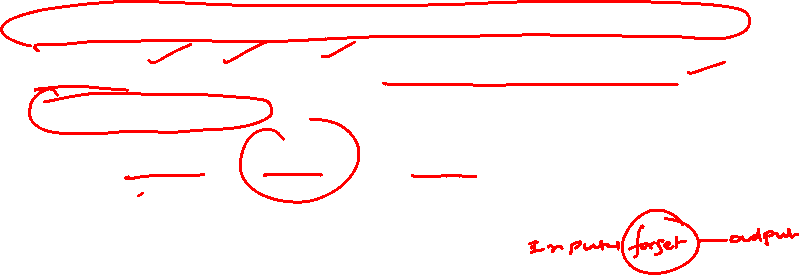 Input forget output